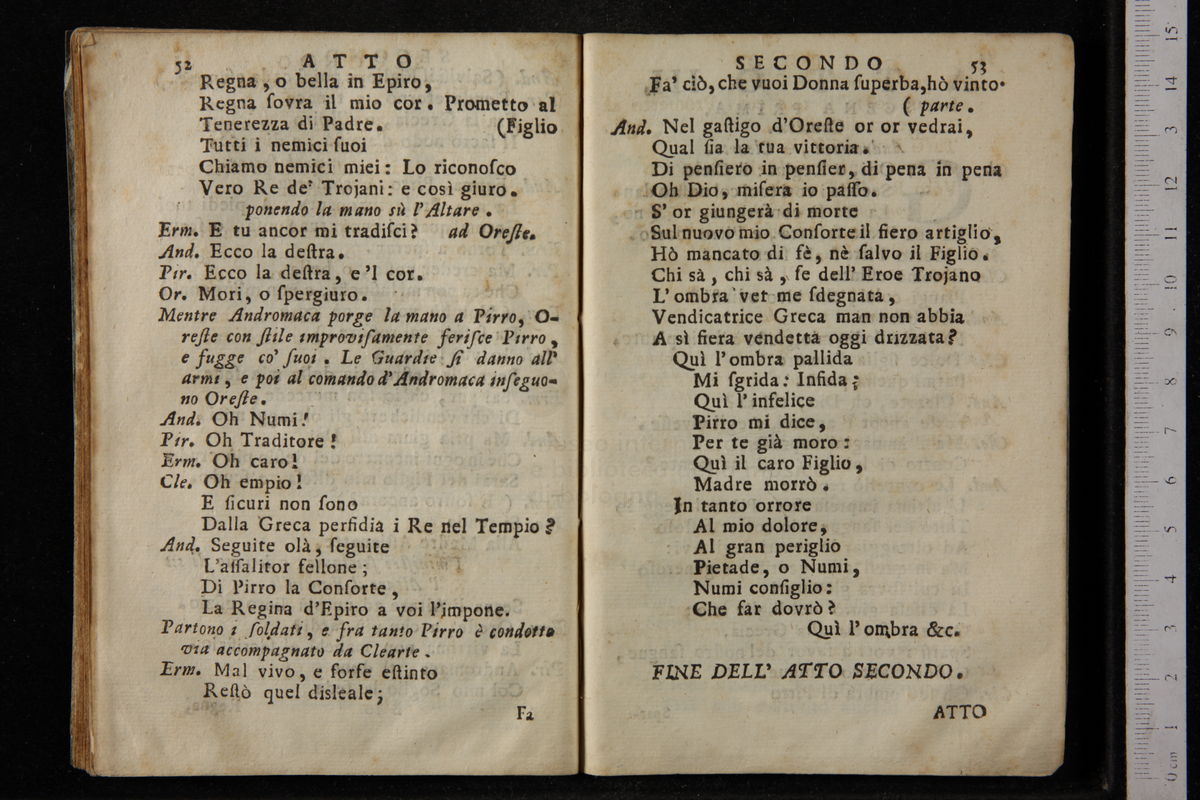 52 ATTO
Regna, o bella in Epiro,
Regna ſovra il mio cor. Prometto al
Tenerezza di Padre. (Figlio
Tutti i nemici ſuoi
Chiamo nemici miei: Lo riconoſco
Vero Re de' Trojani: e così giuro.
ponendo la mano sù l'Altare.
Erm. E tu ancor mi tradiſci? ad Oreſte.
And. Ecco la deſtra.
Pir. Ecco la deſtra, e 'l cor.
Or. Mori, o ſpergiuro.
Mentre Andromaca porge la mano a Pirro, O-
reſte con ſtile improviſamente feriſce Pirro,
e fugge co' ſuoi. Le Guardie ſi danno all'
armi, e poi al comando d'Andromaca inſeguo-
no Oreſte.
And. Oh Numi!
Pir. Oh Traditore!
Erm. Oh caro!
Cle. Oh empio!
E ſicuri non ſono
Dalla Greca perfidia i Re nel Tempio?
And. Seguite olà, ſeguite
L'aſſalitor fellone;
Di Pirro la Conſorte,
La Regina d'Epiro a voi l'impone.
Partono i ſoldati, e fra tanto Pirro è condotto
via accompagnato da Clearte.
Erm. Mal vivo, e forſe eſtinto
Reſtò quel disleale;
Fa
SECONDO 53
Fa' ciò, che vuoi Donna ſuperba, hò vinto.
( parte.
And. Nel gaſtigo d'Oreſte or or vedrai,
Qual ſia la tua vittoria.
Di penſiero in penſier, di pena in pena
Oh Dio, miſera io paſſo.
S' or giungerà di morte
Sul nuovo mio Conſorte il fiero artiglio,
Hò mancato di fè, nè ſalvo il Figlio.
Chi sà, chi sà, ſe dell' Eroe Trojano
L' ombra ver me ſdegnata,
Vendicatrice Greca man non abbia
A sì fiera vendetta oggi drizzata?
Quì l'ombra pallida
Mi ſgrida: Infida;
Quì l'infelice
Pirro mi dice,
Per te già moro:
Quì il caro Figlio,
Madre morrò.
In tanto orrore
Al mio dolore,
Al gran periglio
Pietade, o Numi,
Numi conſiglio:
Che far dovrò?
Quì l'ombra &c.
FINE DELL' ATTO SECONDO.
ATTO
0 cm 1 2 3 4 5 6 7 8 9 10 11 12 3 14 15